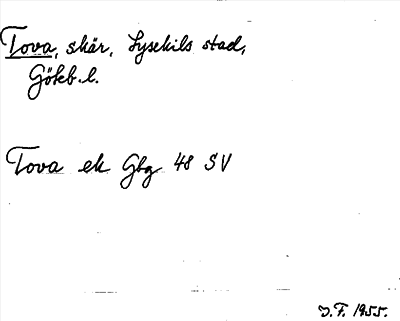 Tova, skär, Lysekils stad,
Göteb. l.
Tova ek Gbg 48 SV
J.F. 1955.